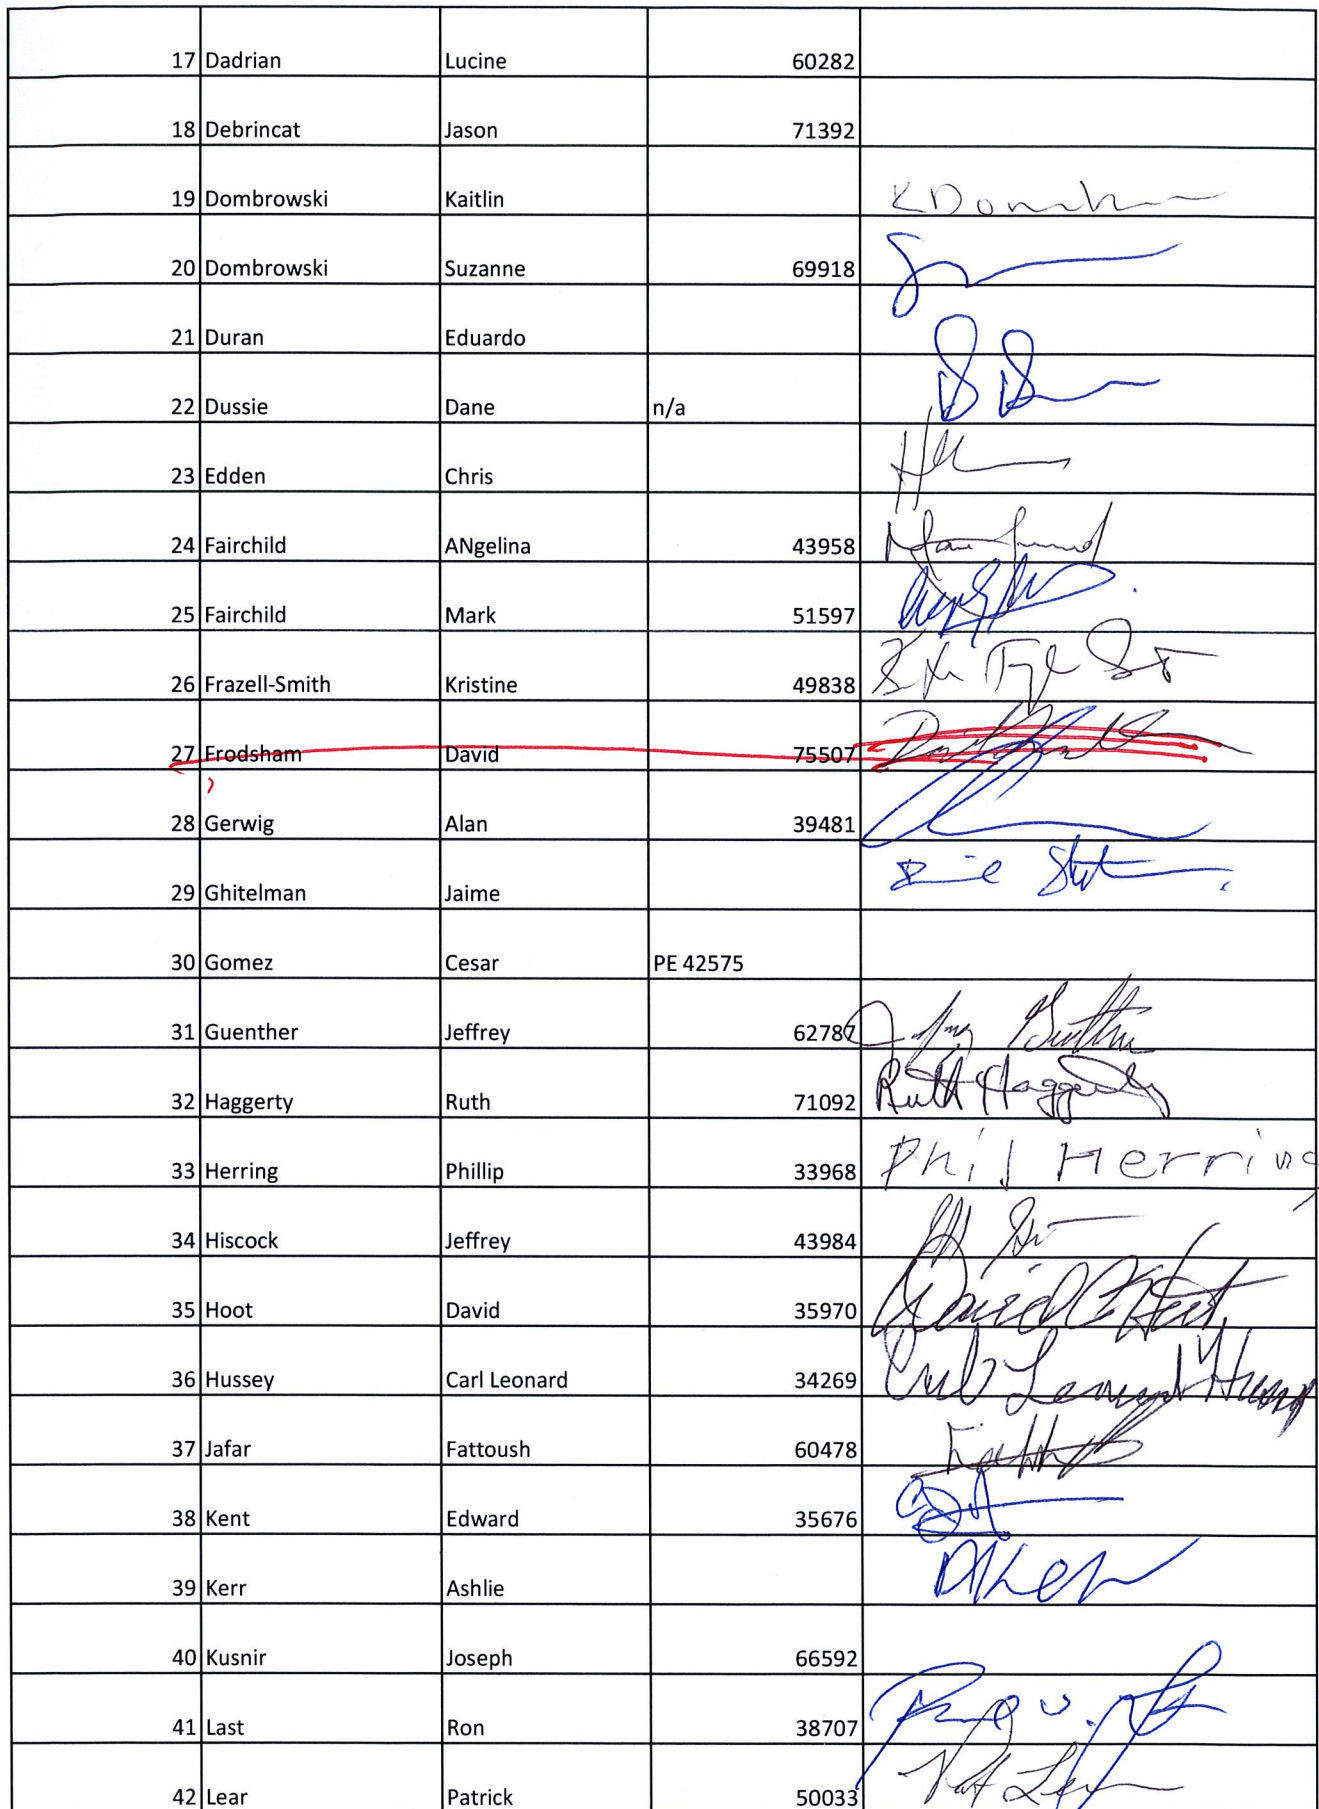 17 Dadrian Lucine 60282
18 Debrincat Jason 71392
19 Dombrowski Kaitlin
20 Dombrowski Suzanne 69918
21 Duran Eduardo
22 Dussie Dane n/a
23 Edden Chris
24 Fairchild ANgelina 43958
25 Fairchild Mark 51597
26 Frazell-Smith Kristine 49838
27 Frodsham David 75507
28 Gerwig Alan 39481
29 Ghitelman Jaime
30 Gomez Cesar PE 42575
31 Guenther Jeffrey 62787
32 Haggerty Ruth 71092 Ruth Haggerty
33 Herring Phillip 33968 Phil Herring
34 Hiscock Jeffrey 43984
35 Hoot David 35970 David Hoot
36 Hussey Carl Leonard 34269 Carl Leonard Hussey
37 Jafar Fattoush 60478
38 Kent Edward 35676
39 Kerr Ashlie
40 Kusnir Joseph 66592
41 Last Ron 38707
42 Lear Patrick 50033 Pat Lear